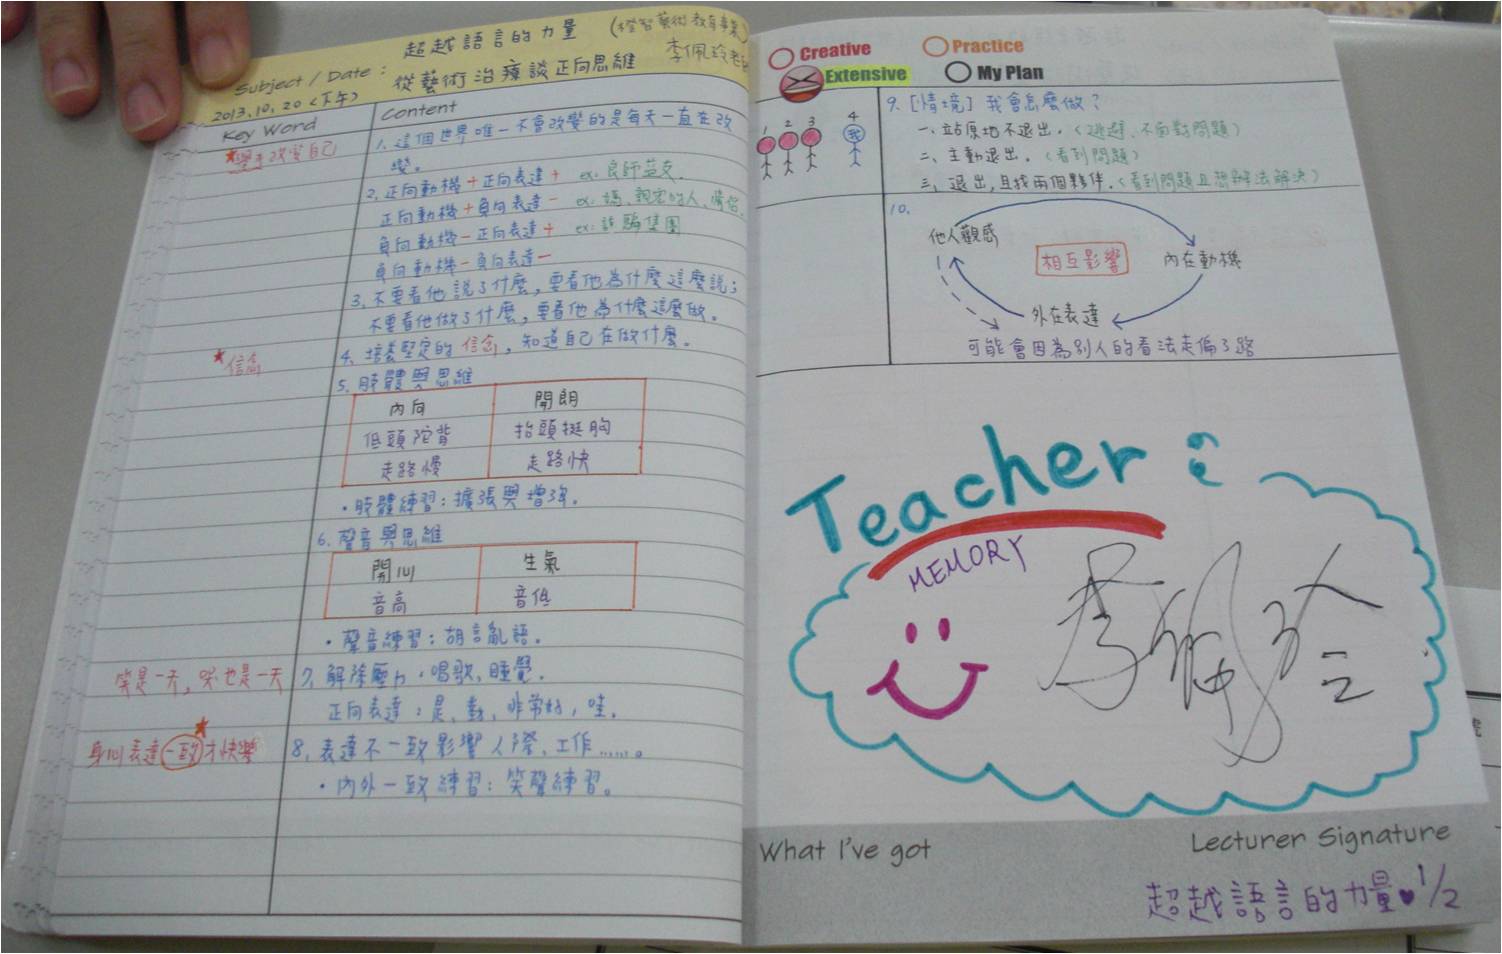 超越語言的力量 (橙智藝術教育專案)
Subject / Date : 從藝術治療談正向思維 李佩玲老師
2013.10.20 (下午)
Key Word
Content
學手改變自己
1. 這個世界唯一不會改變的是每天一直在改
變。
2. 正向動機+正向表達+ ex: 良師益友.
正向動機+負向表達- ex: 媽、親密的人、情侶.
負向動機-正向表達+ ex: 詐騙集團
負向動機-負向表達-
3. 不要看他說了什麼, 要看他為什麼這麼說;
不要看他做了什麼, 要看他為什麼這麼做。
信念
4. 培養堅定的信念, 知道自己在做什麼。
5. 肢體與思維
內向 開朗
低頭陀背 抬頭挺胸
走路慢 走路快
・肢體練習: 擴張與增強.
6. 聲音與思維
開心 生氣
音高 音低
・聲音練習: 胡言亂語.
笑是一天, 哭也是一天
7. 解除壓力・唱歌, 睡覺.
正向表達: 是、對、非常好, 哇.
身心表達一致才快樂
8. 表達不一致影響人際、工作......。
・內外一致練習: 笑聲練習。
Creative
Practice
Extensive
My Plan
1 2 3 4
我
9. [情境] 我會怎麼做?
一. 站原地不退出. (逃避、不面對問題)
二、主動退出. (看到問題)
三. 退出, 且找兩個夥伴. (看到問題且想辦法解決)
10.
他人觀感
相互影響
內在動機
外在表達
可能會因為別人的看法走偏了路
Teacher:
MEMORY
李佩玲
What I've got
Lecturer Signature
超越語言的力量♥1/2